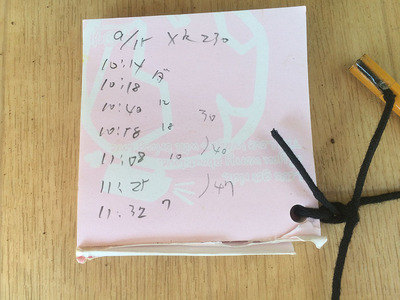 9/15 XK230
10:14
10:18
10:40 12
10:58 18 30
11:08 10 )40
11:25 )47
11:32 7